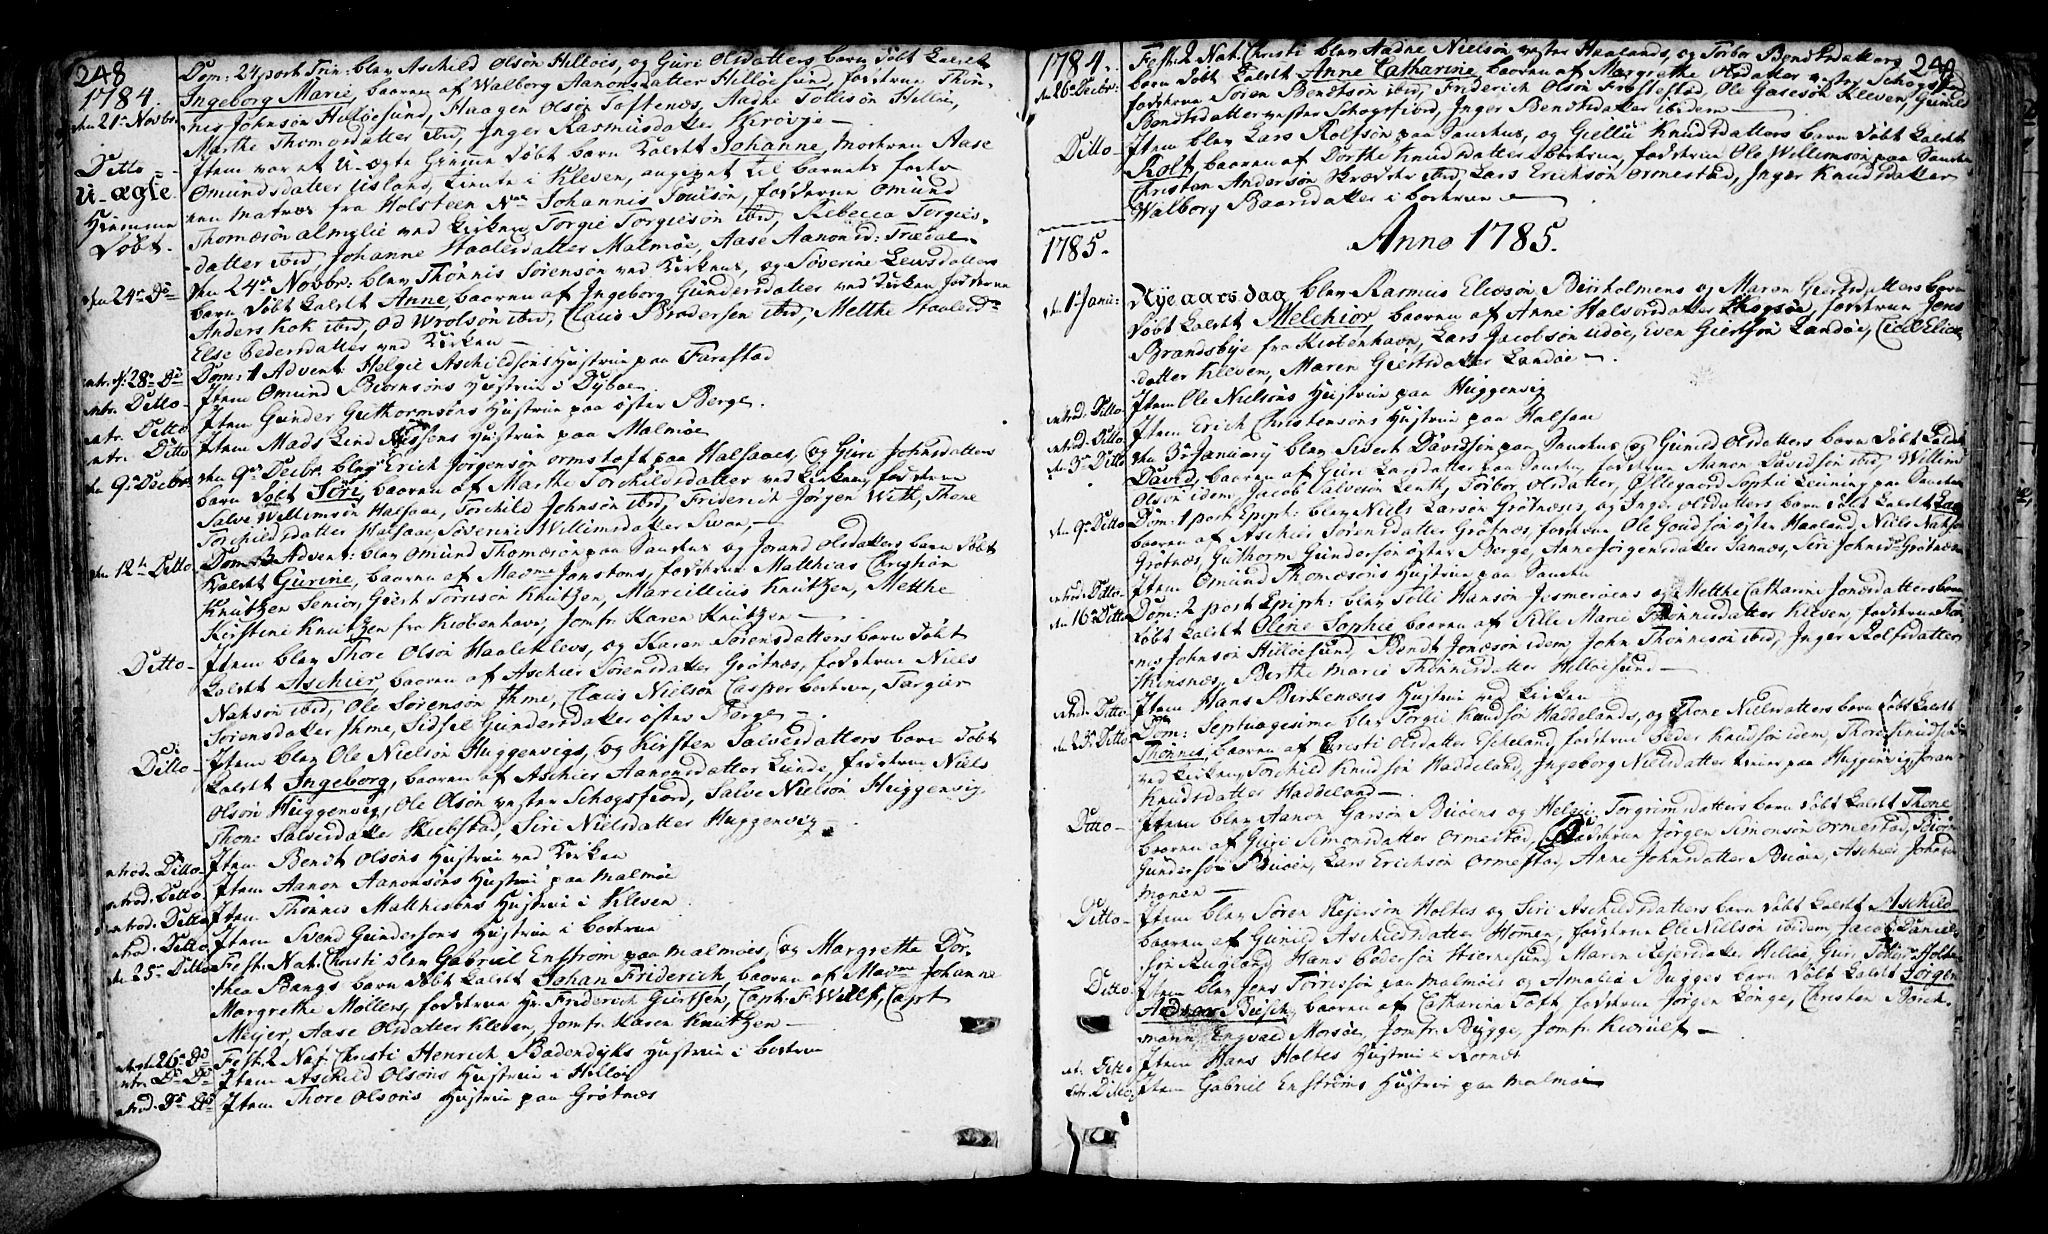 248
1784.
Dom: 24 post Trin: blev Aschild Olsøn Hilløis, og Guri Olsdatters barn døbt kaldet
Ingeborg Marie, baaren af Walborg Aanonsdatter Hilløesund, fadderne Thøn-
den 21de Novbr. nis Johnsøn Hilløesund, Haagen Olsøn Toftenæs, Aadne Tollisøn Hilløe,
Marthe Thomesdatter ibid, Inger Rasmusdatter
Ditto Item var et U-ægte Hiemme døbt barn kaldet Johanne, moderen Aase
U-ægte Omundsdatter Usland, tiente i Kleven, angivet til barnets fader
Hiemme en matros fra Holsteen Nav. Johannis Poulsøn, fadderne Omund
døbt. Thomæsøn ved Kirken, Torgie Torgiesøn ibid, Rebecca Torgies-
datter ibid, Johanne Staalesdatter Malmøe, Aase Aanonsd:
den 24de Do Den 24de Novbr: blev Thønnis Sørensøn ved Kirkens, og Søverine Lewsdatters
barn døbt kaldet Anne baaren af Ingeborg Gundersdatter ved Kirken fadderne
Anders Kok ibid, Od Wrolsøn ibid, Claus Brodersen ibid, Mette Staalesd:
Else Pedersdatter ved Kirken
intr. d: 28de Do Dom: 1 Advent: Helgie Aschildsøns Hustrue paa Farestad
intr. Ditto Item Omund Biørnsøns Hustrue i Dybøe
intr. Ditto Item Gunder Guthormsøns Hustrue paa øster Berge.
intr. Ditto Item Mads Lind Hustrue paa Malmøe
den 9de Decbr. den 9de Decbr. blev Erich Jørgensøn Ormstoft paa Halsaaes, og Guri Johnsdatters
barn døbt Siri, baaren af Marthe Torchildsdatter ved Kirken, fadderne
Salve Willimsøn Halsaae, Torchild Johnsøn ibid, Friderich Jørgen Witt, Thone
Torchildsdatter Halsaae, Søverine Willimsdatter
den 12te Ditto Dom: 3 Advent: blev Omund Thomæsøn paa Sanches og Jorand Olsdatters barn døbt
kaldet Gurine, baaren af Madme Jonstons, fadderne Matthias Christian
Knutzen Senior, Giert Torrisøn Knutzen, Marcellius Knutzen, Metthe
Kirstine Knutzen fra Kiøbenhavn, Jomfr: Karen Knutzen
Ditto Item blev Thore Olsøn Haaleklevs, og Karen Sørensdatters barn døbt
kaldet Aschier, baaren af Aschier Sørensdatter Grøtnæs, fadderne Niels
Nahsøn ibid, Ole Sørensøn Ihme, Claus Nielsøn Casper Torgier
Sørensdatter Ihme, Sidsel Gundersdatter øster Berge
Ditto Item blev Ole Nielsøn Huggenvigs, og Kirsten Salvesdatters barn døbt
kaldet Ingeborg, baaren af Aschier Aanonsdatter Lunde, fadderne Niels
Olsøn Huggenvig, Ole Olsøn vester Schogsfiord, Salve Nielsøn Huggenvig,
Thone Salvesdatter Siri Nielsdatter Huggenvig
introd. Ditto Item Bendt Olsøns Hustrue ved Kirken
introd. Ditto Item Aanon Aanonsøns Hustrue paa Malmøe
introd. Ditto Item Thønnis Matthisøns Hustrue i Kleven
introd. Ditto Item Svend Gundersøns Hustrue i
den 25de Ditto Fest: Nat: Christi blev Gabriel Enstrøm paa Malmøes, og Margrethe Dor-
thea Bangs barn døbt kaldet Johan Friderich, baaren af Madme Johanne
Margrethe Møllers, fadderne Hr. Friderich Giertsen, Capt. F. Witt, Capt
Meijer, Aase Olsdatter Kleven, Jomfr: Karen Knutzen
introd. 26de Do Fest: 2 Nat: Christi Henrich Badendyks Hustrue i
intr. Do Do Item Aschild Olsøns Hustrue i Hilløe
introd. Do Do Item Thore Olsøns Hustrue paa Grøtnæs
249
1784.
den 26de Decbr. Fest: 2 Nat: Christi blev Aadne Nielsøn vester Haalands, og Torbor Bendtsdatters
barn døbt kaldet Anne Catharine, baaren af Margrethe Olsdatter vester Schogsfiord
fadderne Søren Bendtsøn ibid, Friderich Olsøn Ole Gasesøn Kleven, Gunild
Bendtsdatter vester Schogsfiord, Inger Bendtsdatter ibidem
Ditto Item blev Lars Rolfsøn paa Sanches, og Giellu Knudsdatters barn døbt kaldet
Rolf, baaren af Dorthe Knudsdatter fadderne Ole Willimsøn paa Sanches
Christen Andersøn ibid, Lars Erichsøn Ormestad, Inger Knudsdatter
Walborg Baarsdatter i
Anno 1785.
1785.
den 1ste Janu: Nye aars dag blev Rasmus Eliesøn og Maren Giertsdatters barn
døbt kaldet Melchior, baaren af Anne Halvorsdatter fadderne Jens
Brandsbye fra Kiøbenhavn, Lars Jacobsøn Udøe, Even Giertsøn Landøe, Elie
datter Kleven, Maren Giertsdatter Landøe
introd. Ditto Item Ole Nielsøns Hustrue paa Huggenvig
introd. Ditto Item Erich Christensøns Hustrue paa Halsaae
den 3de Ditto den 3de January blev Sivert Davidsøn paa Sanches og Gunild Olsdatters barn døbt kaldet
David, baaren af Guri Larsdatter paa Sanches, fadderne Aanon Davidsøn ibid, Willim
Olsøn idem, Jacob Salvesøn Torbor Olsdatter, Øllegaard Sophie paa Sanches
den 9de Ditto Dom: 1 post Epiph: blev Niels Larsøn Grøtnæses, og Inger Olsdatters barn døbt kaldet
baaren af Aschier Sørensdatter Grøtnæs, fadderne Ole øster Haaland, Niels Nahsøn
Grøtnæs, Guthorm Gundersøn øster Berge, Anne Jørgensdatter Siri Johnsd: Grøtnæs
introd. Ditto Item Omund Thomæsøns Hustrue paa Sanches
den 16de Ditto Dom: 2 post Epiph: blev Tolli Hansøn og Metthe Catharine Jonsdatters barn
døbt kaldet Oline Sophie baaren af Sille Marie Thønnesdatter Kleven, fadderne Thøn-
nes Johnsøn Hilløesund, Bendt Jonæsøn idem, John Thønnesøn ibid, Inger Rolfsdatter
Berthe Marie Thønnisdatter Hilløesund
introd. Ditto Item Hans Birkenæses Hustrue ved Kirken
den 23de Ditto Dom: Septuagesime blev Torgie Knudsøn Haddelands, og Thone Nielsdatters barn døbt kaldet
Thønnes, baaren af Christi Olsdatter fadderne Peder Knudsøn idem, Thore Knudsøn
ved Kirken, Torchild Knudsøn Haddeland, Ingeborg Nielsdatter paa Huggenvig, Joran
Knudsdatter Haddeland
Ditto Item blev Aanon Garsøn Buøens og Helgie Torgrimsdatters barn døbt kaldet Thone
baaren af Guri Simonsdatter Ormestad, fadderne Jørgen Simonsøn Ormestad, Biørn
Gundersøn Buøen, Lars Erichsøn Ormestad, Anne Johnsdatter Buøen, Aschier Johnsd:
monen
Ditto Item blev Søren Reiersøn Holtes og Siri Aschildsdatters barn døbt kaldet Aschild
baaren af Gunild Aschildsdatter Homen, fadderne Ole Nielsøn ibidem, Jacob Daniel-
søn Rugland, Hans Pedersøn Maren Reiersdatter Hilløe, Guri Holte
Ditto Item blev Jens Torrissøn paa Malmøes og Amalia Bugges barn døbt kaldet Jørgen
Andreas Busch, baaren af Catharina Toft fadderne Jørgen Lunge, Christen
mann Engvald Morsøe, Jomfr: Bugge, Jomfr:
int. Ditto Item Hans Holtes Hustrue i
intr. Ditto Item Gabriel Enstrøms Hustrue paa Malmøe